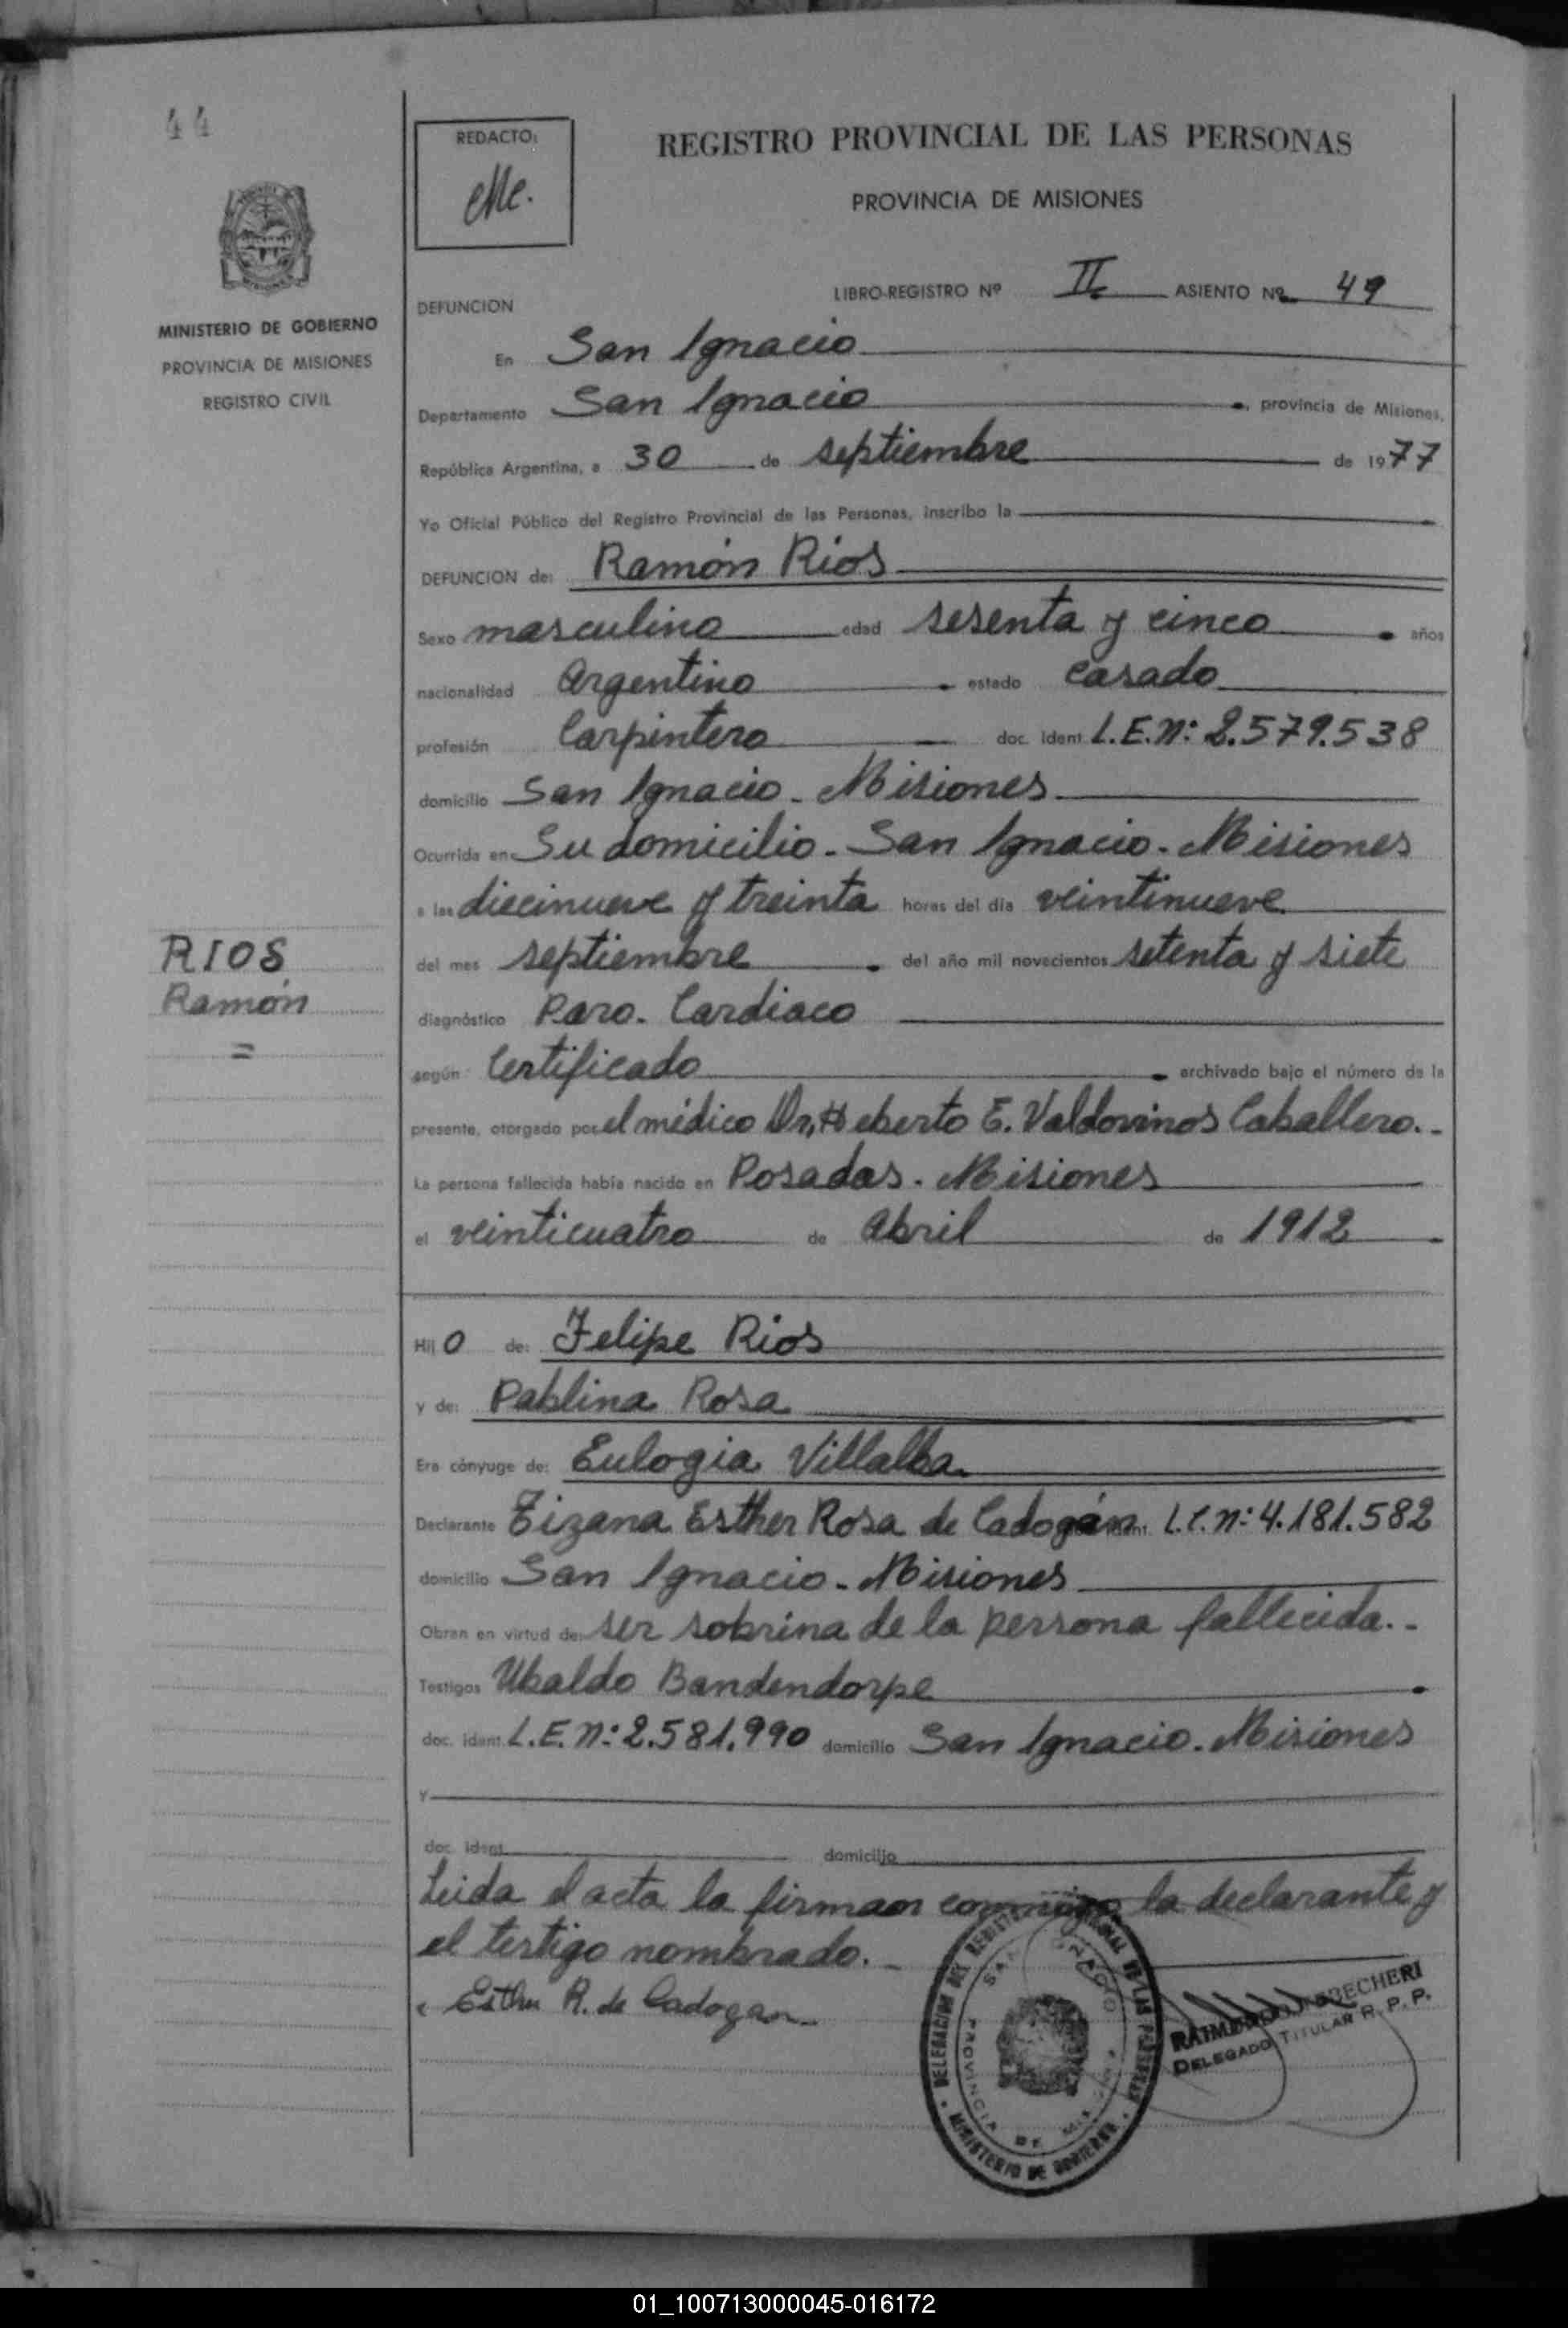 44
REDACTO:
REGISTRO PROVINCIAL DE LAS PERSONAS
PROVINCIA DE MISIONES
MISIONES
MINISTERIO DE GOBIERNO
PROVINCIA DE MISIONES
REGISTRO CIVIL
DEFUNCION
LIBRO-REGISTRO Nº II ASIENTO Nº 49
En San Ignacio
Departamento San Ignacio, provincia de Misiones,
República Argentina, a 30 de septiembre de 1977
Yo Oficial Público del Registro Provincial de las Personas, inscribo la
DEFUNCION de: Ramón Rios
Sexo masculino edad sesenta y cinco años
nacionalidad Argentino estado Casado
profesión Carpintero doc. ident. L.E.n: 2.579.538
domicilio San Ignacio - Misiones
Ocurrida en Su domicilio - San Ignacio - Misiones
a las diecinueve y treinta horas del día veintinueve
del mes septiembre del año mil novecientos setenta y siete
RIOS
Ramón
=
diagnóstico Paro. Cardiaco
según Certificado archivado bajo el número de la
presente, otorgado por el médico Dr, Heberto E. Valdovinos Caballero.-
La persona fallecida había nacido en Posadas - Misiones
el veinticuatro de Abril de 1912
Hijo de: Felipe Rios
y de: Pablina Rosa
Era cónyuge de: Eulogia Villalba
Declarante Tizana Esther Rosa de Cadogán L.C.n: 4.181.582
domicilio San Ignacio - Misiones
Obran en virtud de: ser sobrina de la persona fallecida.-
Testigos Ubaldo Bandendorpe
doc. ident. L.E.n: 2.581.990 domicilio San Ignacio - Misiones
y
doc. ident. domicilio
Leida el acta la firman conmigo la declarante y
el testigo nombrado.-
Esther R. de Cadogan
DELEGACION DEL REGISTRO PROVINCIAL DE LAS PERSONAS
SAN IGNACIO
PROVINCIA DE MISIONES
MINISTERIO DE GOBIERNO
DELEGADO TITULAR R. P. P.
01_100713000045-016172